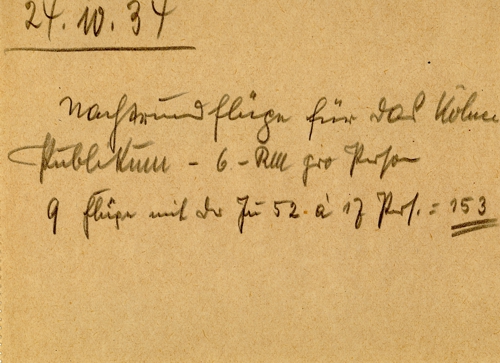 24.10.34
Nachtrundflüge für das Kölner
Publikum - 6 - RM pro Person
9 Flüge mit der Ju 52 à 17 Pers. = 153